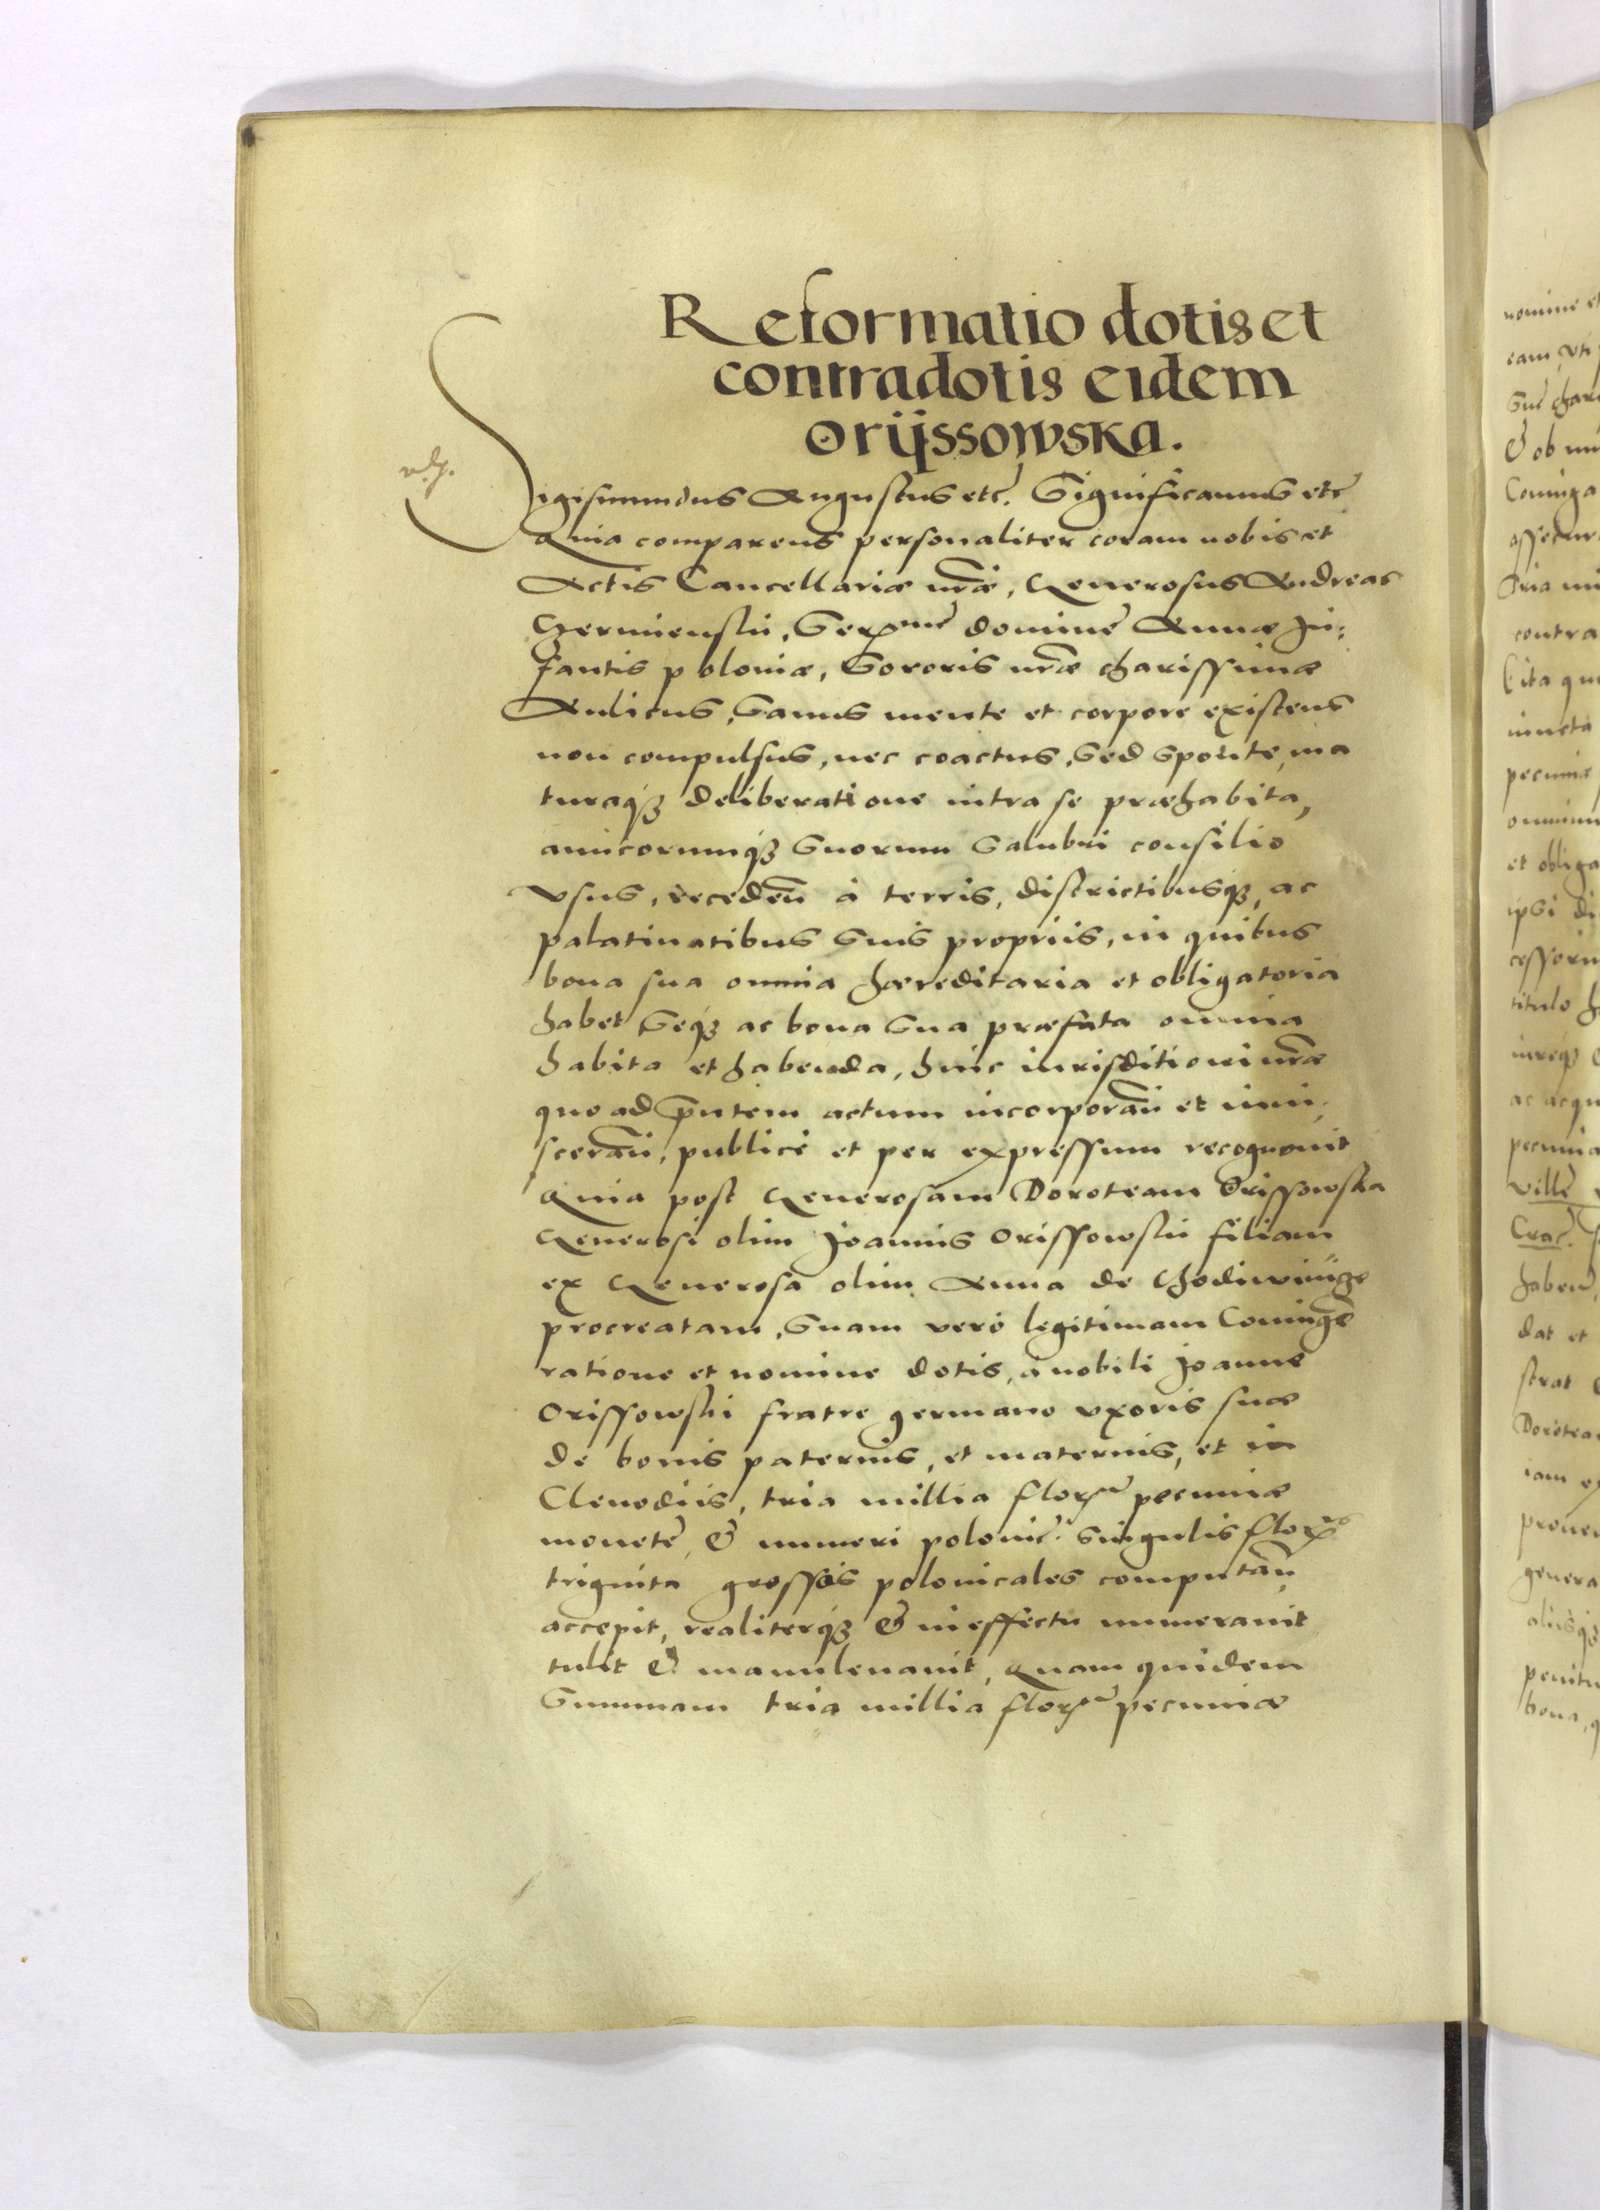 Reformatio dotis et
contradotis eidem
Orÿssowska.
Sigismundus Augustus etc̃. Significamus etc̃
Quia comparens personaliter coram nobis et
Actis Cancellariæ nr̃æ, Generosus Andreas
Czerminskii, Serx̃me domine Annæ In:
fantis poloniæ, Sororis nr̃æ charissimæ
Aulicus, Sanus mente et corpore existens
non compulsus, nec coactus, Sed sponte, ma
turaqȝ deliberatione intra se præhabita,
amicorumqȝ suorum salubri consilio
vsus, recedeñ à terris, districtibusqȝ, ac
palatinatibus suis propriis, in quibus
bona sua omnia hæreditaria et obligatoria
habet Seqȝ ac bona sua præfata omnia
habita et habenda, huic iurisditioni nr̃æ
quo ad pñtem actum incorporañ et inui,
scerañ, publicè et per expressum recognouit
Quia post Generosam Doroteam Orissowska
Generosi olim Joannis Orissowskii filiam
ex Generosa olim Anna de
procreatam, Suam verò legitimam Coniugẽ
ratione et nomine dotis, a nobili Joanne
Orissowski fratre germano vxoris suæ
de bonis paternis, et maternis, et in
Clenodiis, tria millia florꝝ pecuniæ
monete, & numeri polonic̃. singulis florx̃
triginta grossos polonicales computañ
accepit, realiterqȝ & in effectu numerauit
tulit & manuleuauit, Quam quidem
Summam tria millia florꝝ pecuniæ
nomine et
contra
pecuniæ
et obliga
titulo
pecunia
Crac̃.
dat et
Dorotea
genera
bona,